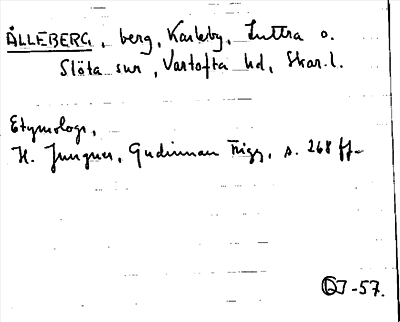 ÅLLEBERG, berg, Karleby, Luttra o.
Slöta snr, Vartofta hd, Skar. l.
Etymologi,
H. Jungner, Gudinnan Frigg, s. 268 ff.
J-57.